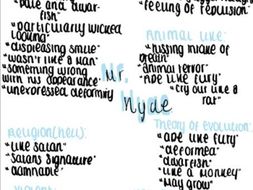 "pale and dwar-
fish"
"particularly wicked
looking"
"displeasing smile"
"wasn't like a man"
"something wrong
with his appearance"
"unexpressed deformity
Religion (hell):
"like satan"
"satans signature"
"damnable"
Mr.
Hyde
feeling of repulsion"
Animal like:
"hissing intake of
breath"
"animal terror"
"ape like fury"
"cry out like a
rat"
Theory of evolution:
"ape like fury"
"deformed"
"dwarfish"
"like a monkey"
"May grow